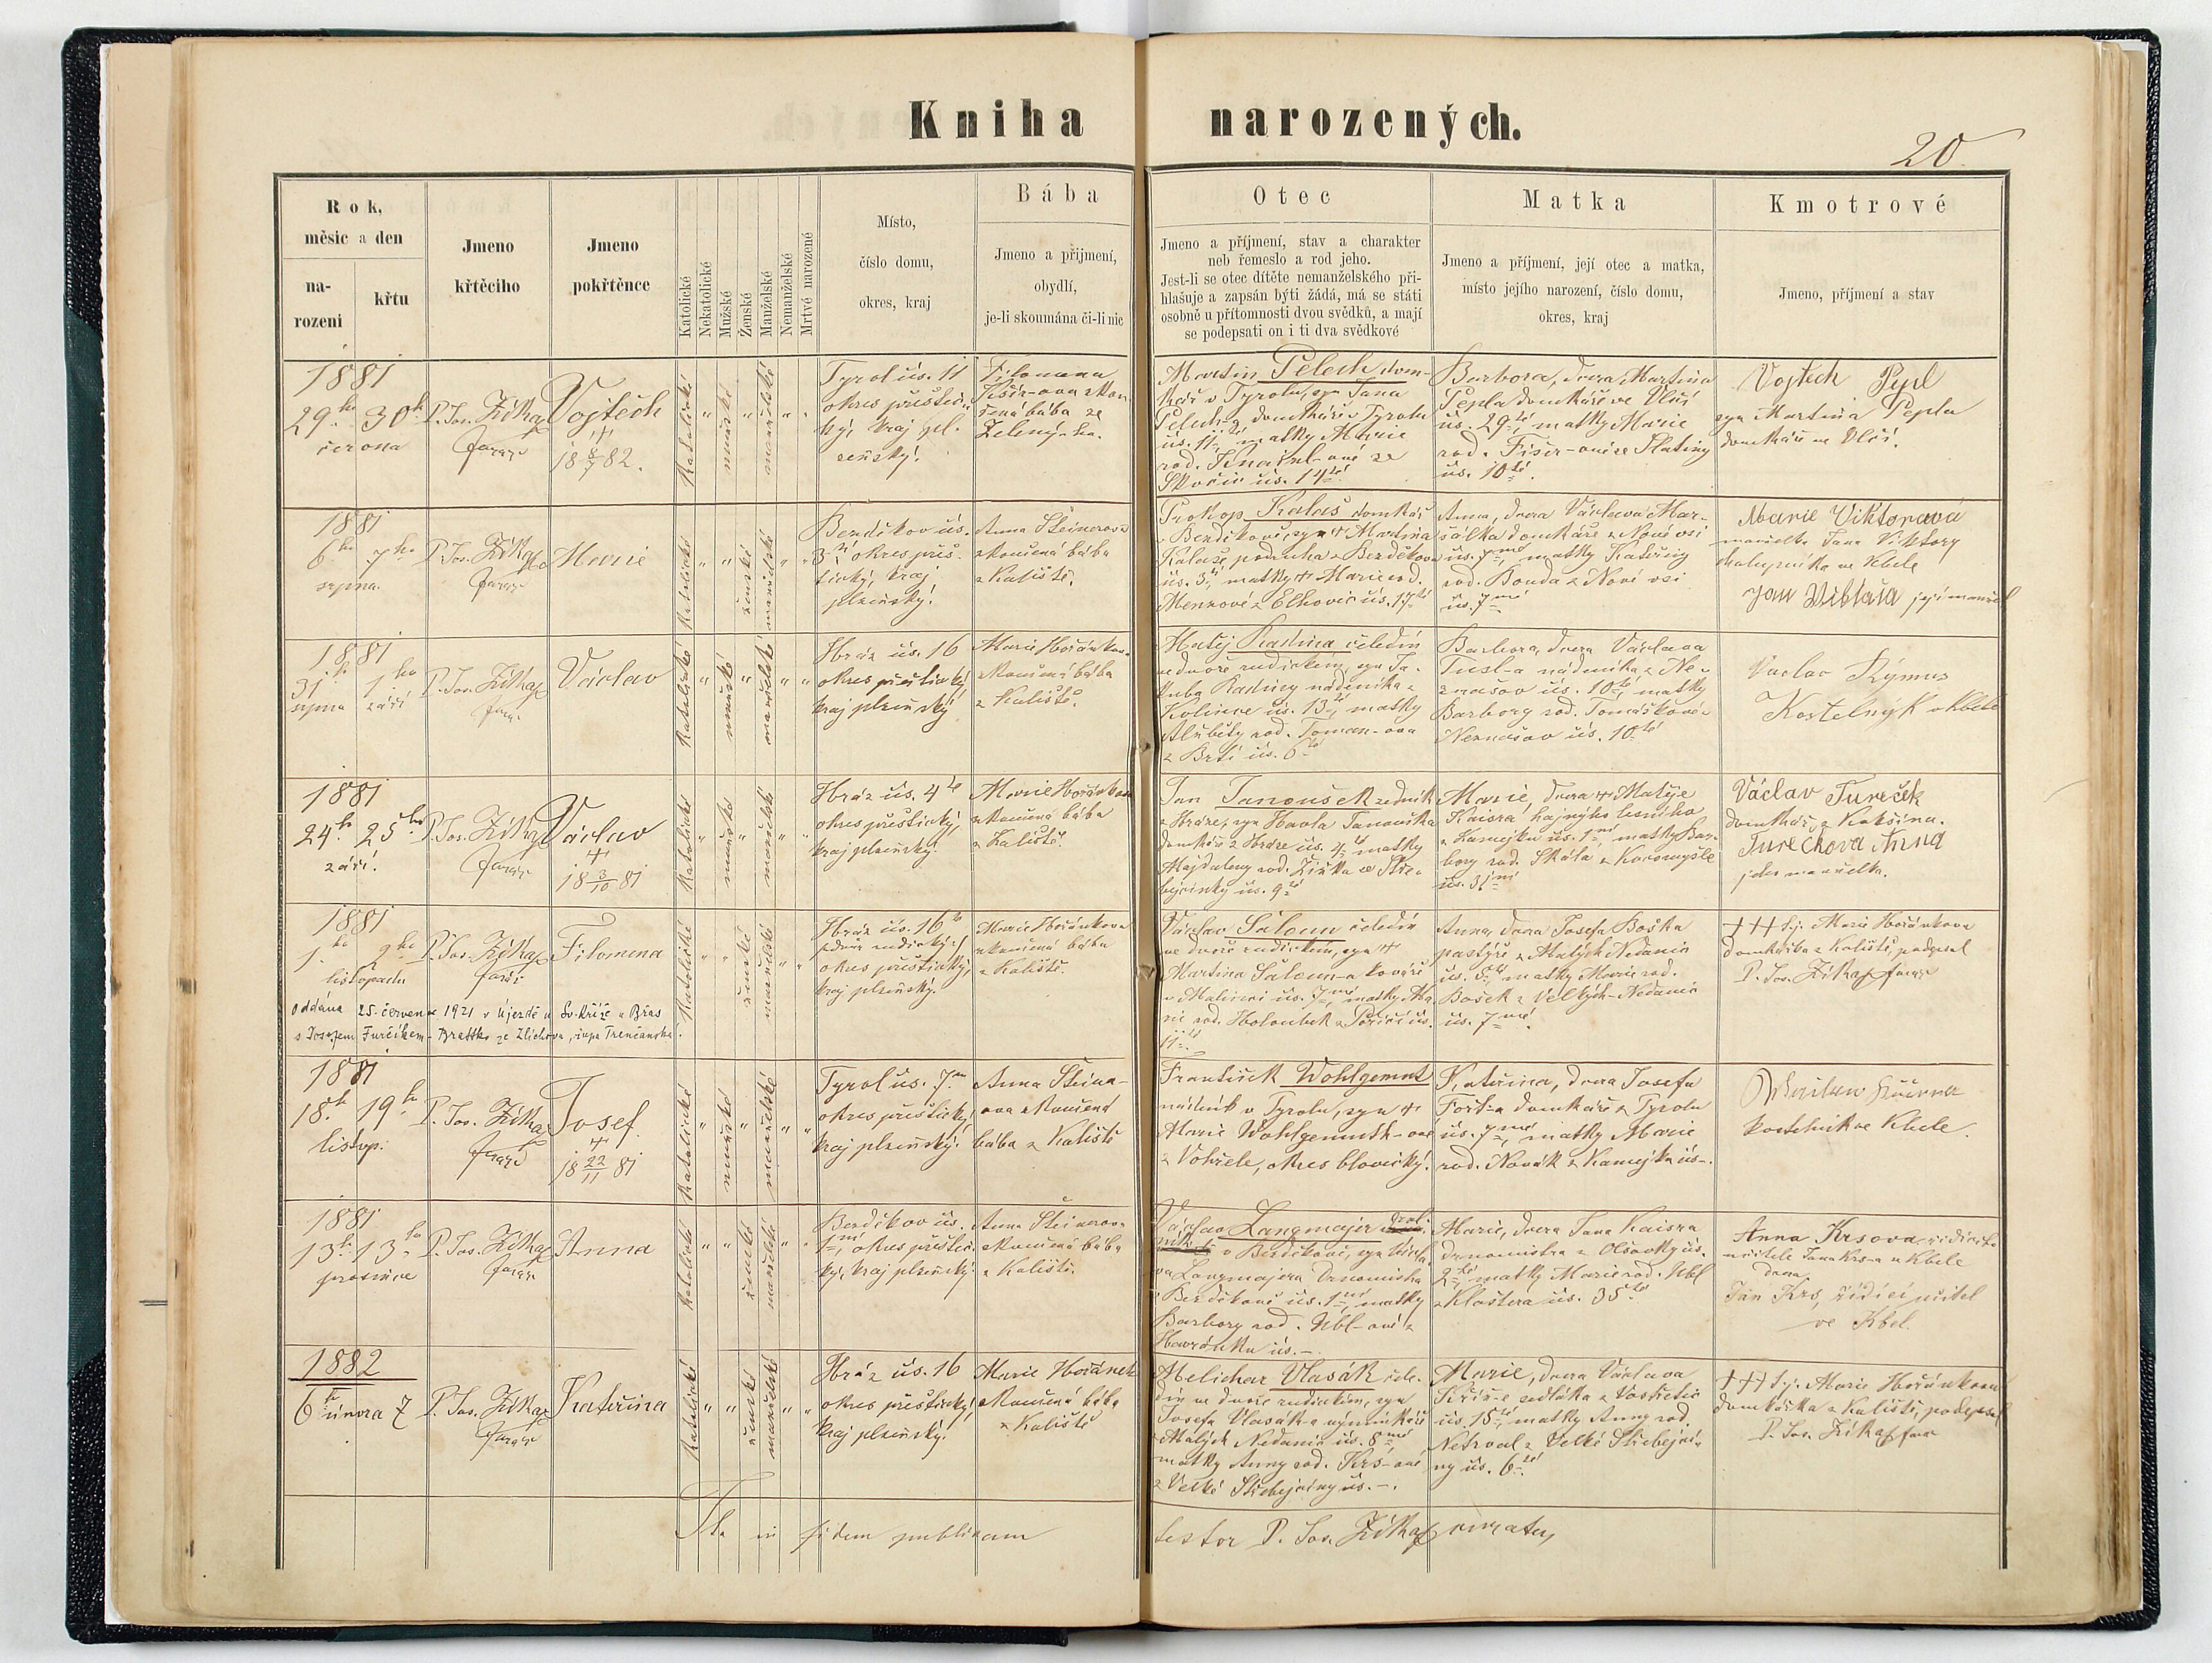 Kniha narozených.
20
Rok,
měsíc a den
na-
rozeni
křtu
Jmeno
křtěciho
Jmeno
pokřtěnce
Katolické
Nekatolické
Mužské
Ženské
Manželské
Nemanželské
Mrtvé narozené
Místo,
číslo domu,
okres, kraj
Bába
Jmeno a přijmení,
obydlí,
je-li skoumána či-li nic
Otec
Jmeno a příjmení, stav a charakter
neb řemeslo a rod jeho.
Jest-li se otec dítěte nemanželského při-
hlašuje a zapsán býti žádá, má se státi
osobně u přítomnosti dvou svědků, a mají
se podepsati on i ti dva svědkové
Matka
Jmeno a příjmení, její otec a matka,
místo jejího narození, číslo domu,
okres, kraj
Kmotrové
Jmeno, příjmení a stav
1881
29ho 30ho
června
P. Jos. Zítka
farář
Vojtěch
†
18 8/7 82.
Katolické
"
mužské
"
manželské
"
"
Tyrol čís. 11
okres přeštic-
ký, kraj pl-
zeňský.
Filomena
zkou-
šená bába ze
Zelený-ho.
Martin Pelech dom-
kář v Tyrolu, syn Jana
Pelech-a domkáře v Tyrolu
čís. 11, matky Marie
rod. ze
Skočic čís. 14té
Barbora, dcera Martina
Pepla domkáře ve Vlčí
čís. 29té, matky Marie
rod. Fišer-ové ze Slatiny
čís. 10té.
Vojtech Pepl
syn Martina Pepla
domkáře ve Vlčí.
1881
6ho 7ho
srpna.
P. Jos. Zítka
farář
Marie
Katolické
"
"
ženské
manželské
"
"
Bezděkov čís.
3tí, okres přeš-
tický, kraj
plzeňský.
Anna Šteinerova
zkoušená bába
z Kaliště.
Prokop Kalaš domkář
v Bezděkově, syn † Martina
Kalaše, podruha z Bezděkova
čís. 3tí, matky † Marie rod.
Menzové z Elhovic čís. 17té
Anna, dcera Václava Mar-
šálka domkáře z Nové vsi
čís. 7mé, matky Kateřiny
rod. Bouda z Nové vsi
čís. 7mé
Marie Viktorava
manželka Jana Viktory
chalupníka ve Kbele
Jan Wiktaia její manžel
1881
31ho 1ho
srpna září
P. Jos. Zítka
farář
Václav
Katolické
"
mužské
"
manželské
"
"
Hráz čís. 16
okres přeštický
kraj plzeňský
Marie Hořánkova
zkoušená bába
z Kaliště.
Matěj Radina čeledín
ve dvoře rudickém, syn Ja-
kuba Radiny nádeníka z
Kolince čís. 13té, matky
Alžběty rod. Toman-ova
z Brtí čís. 6té
Barbora, dcera Václava
Tusl-a nádeníka z Ne-
znašov čís. 10té, matky
Barbory rod. Tomáškové z
Neznašov čís. 10té
Vaclav Rýmus
Kostelnyk v Kbele
1881
24ho 25ho
září.
P. Jos. Zítka
farář
Václav
†
18 3/10 81
Katolické
"
mužské
"
manželské
"
"
Hráz čís. 4té
okres přeštický,
kraj plzeňský.
Marie Hořánkova
zkoušená bába
z Kaliště.
Jan Janoušek zedník
z Hráze, syn Havla Janouška
domkáře z Hráze čís. 4té matky
Majdaleny rod. Žižka ze Stře-
byčinky čís. 9té
Marie, dcera † Matěje
Kaisra hajného lesního
z Kamejku čís. 1ní, matky Bar-
bory rod. Skála z Koromyšle
čís. 31ní
Václav Tureček
domkář z Kokšína.
Turečková Anna
jeho manželka.
1881
1ho 2ho
listopadu
P. Jos. Zítka
farář
Filomena
Katolické
"
"
ženské
manželské
"
"
Hráz čís. 16té
/: dvůr rudický :/
okres přeštický,
kraj plzeňský.
Marie Hořánkova
zkoušená bába
z Kaliště.
Václav Šaloun čeledín
ve dvoře rudickém, syn †
Martina Šaloun-a kováře
v Malinci čís. 7mé, matky Ma-
rie rod. Holoubek z Poříčí čís.
11té
Anna, dcera Josefa Boška
pastýře z Malých Nedanic
čís. 5té, matky Marie rod.
Bošek z Velkých-Nedanic
čís. 7mé.
††† t.j. Marie Hořánkova
domkářka z Kaliště, podepsal
P. Jos. Zítka farář
Oddána 25. července 1921 v Újezdě u Sv. Kříže u Břas
s Josefem Furčíkem - Brattko ze Zliechova, župa Trenčanská.
1881
18ho 19ho
listop.
P. Jos. Zítka
farář
Josef
†
18 22/11 81
Katolické
"
mužské
"
manželské
"
"
Tyrol čís. 7mé
okres přeštický,
kraj plzeňský.
Anna Šteine-
ova zkoušená
bába z Kaliště
František Wohlgemut
nádeník v Tyrolu, syn †
Marie Wohlgemuth-ové
z Vohřele, okres blovický.
Kateřina, dcera Josefa
Fořt-a domkáře z Tyrolu
čís. 7mé, matky Marie
rod. Novák z Kamejka čís-.
kostelnik ve Kbele.
1881
13ho 13ho
prosince
P. Jos. Zítka
farář
Anna
Katolické
"
"
ženské
manželské
"
"
Bezděkov čís.
1ní, okres přeštic-
ký, kraj plzeňský.
Anna Šteinerova
zkoušená bába
z Kaliště.
Václav Langmajer
v Bezděkově, syn Václa-
va Langmajera Drnomistra
z Bezděkova čís. 1ní, matky
Barbory rod. Ubl-ové z
Havránku čís. -.
Marie, dcera Jana Kaisra
Drnomistra z Olšovky čís.
2hé, matky Marie rod. Ubl
z Kláštera čís. 35té
Anna Krsova, řídícího
učitele Jana Krs-a v Kbele
dcera
Jan Krs, řídící učitel
ve Kbel.
1882
6ho února 7
P. Jos. Zítka
farář
Kateřina
Katolické
"
"
ženské
manželské
"
"
Hráz čís. 16
okres přeštický,
kraj plzeňský.
Marie Hořánek
zkoušená bába
z Kaliště
Melichar Vlasák čele-
dín ve dvoře rudickém, syn
Josefa Vlasák-a výminkáře
z Malých Nedanic čís. 8mé
matky Anny rod. Krs-ové
z Velké Střebyčiny čís. -.
Marie, dcera Václava
Kříže sedláka z Vostřetic
čís. 15té, matky Anny rod.
Netrval z Velké Střebyči-
ny čís. 6té.
††† t.j. Marie Hořánkova
domkářka z Kaliště, podepsal
P. Jos. Zítka farář
Ita in fidem publicam testor P. Jos. Zítka curatus